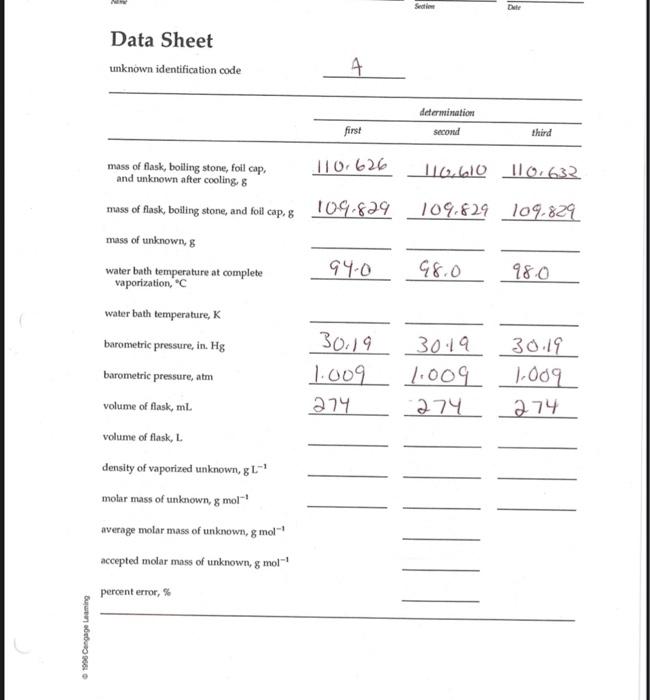 Name
Section
Date
Data Sheet
unknown identification code A
determination
first second third
mass of flask, boiling stone, foil cap,
and unknown after cooling, g 110.626 110.610 110.632
mass of flask, boiling stone, and foil cap, g 109.829 109.829 109.829
mass of unknown, g
water bath temperature at complete
vaporization, °C 94.0 98.0 98.0
water bath temperature, K
barometric pressure, in. Hg 30.19 30.19 30.19
barometric pressure, atm 1.009 1.009 1.009
volume of flask, mL 274 274 274
volume of flask, L
density of vaporized unknown, g L⁻¹
molar mass of unknown, g mol⁻¹
average molar mass of unknown, g mol⁻¹
accepted molar mass of unknown, g mol⁻¹
percent error, %
© 1996 Cengage Learning